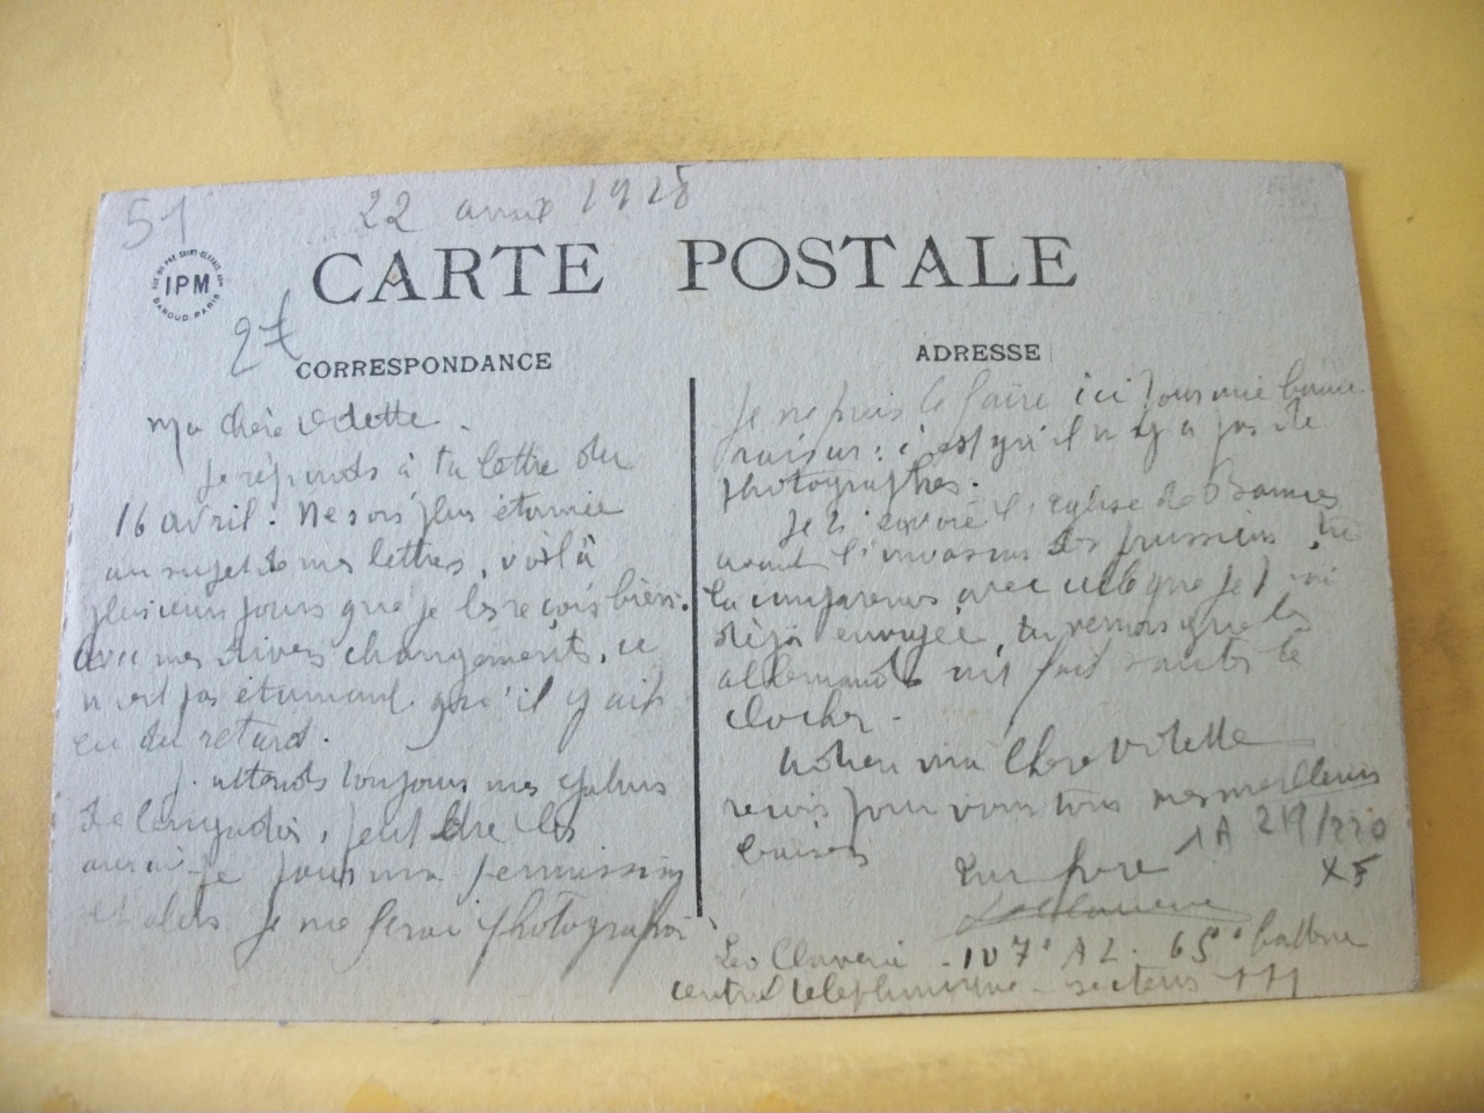 51
22 avril 1918
RUE DU PRÉ SAINT-GERVAIS
IPM
BAROUD. PARIS
CARTE POSTALE
2€
CORRESPONDANCE
ADRESSE
Ma chère Odette.
Je réponds à ta lettre du
16 avril. Ne sois plus étonnée
au sujet de mes lettres, voilà
plusieurs jours que je les reçois bien.
avec mes divers changements, ce
n'est pas étonnant qu'il y ait
eu du retard.
J'attends toujours mes galons
de , peut être les
aurai-je pour ma permission
et alors je me ferai photographier
Je ne puis le faire ici pour une bonne
raison: c'est qu'il n'y a pas de
photographes.
Je t'envoie l'église de
avant l'invasion des prussiens, tu
la compareras avec celle que je t'ai
déjà envoyée, tu verras que les
allemands ont fait sauter le
clocher.
ma chère Odette
reçois pour vous tous mes meilleurs
baisers
1A 219/220
Ton frère
x5
Leo Claverie - 107e A L. 65e batterie
central téléphonique - secteur 171